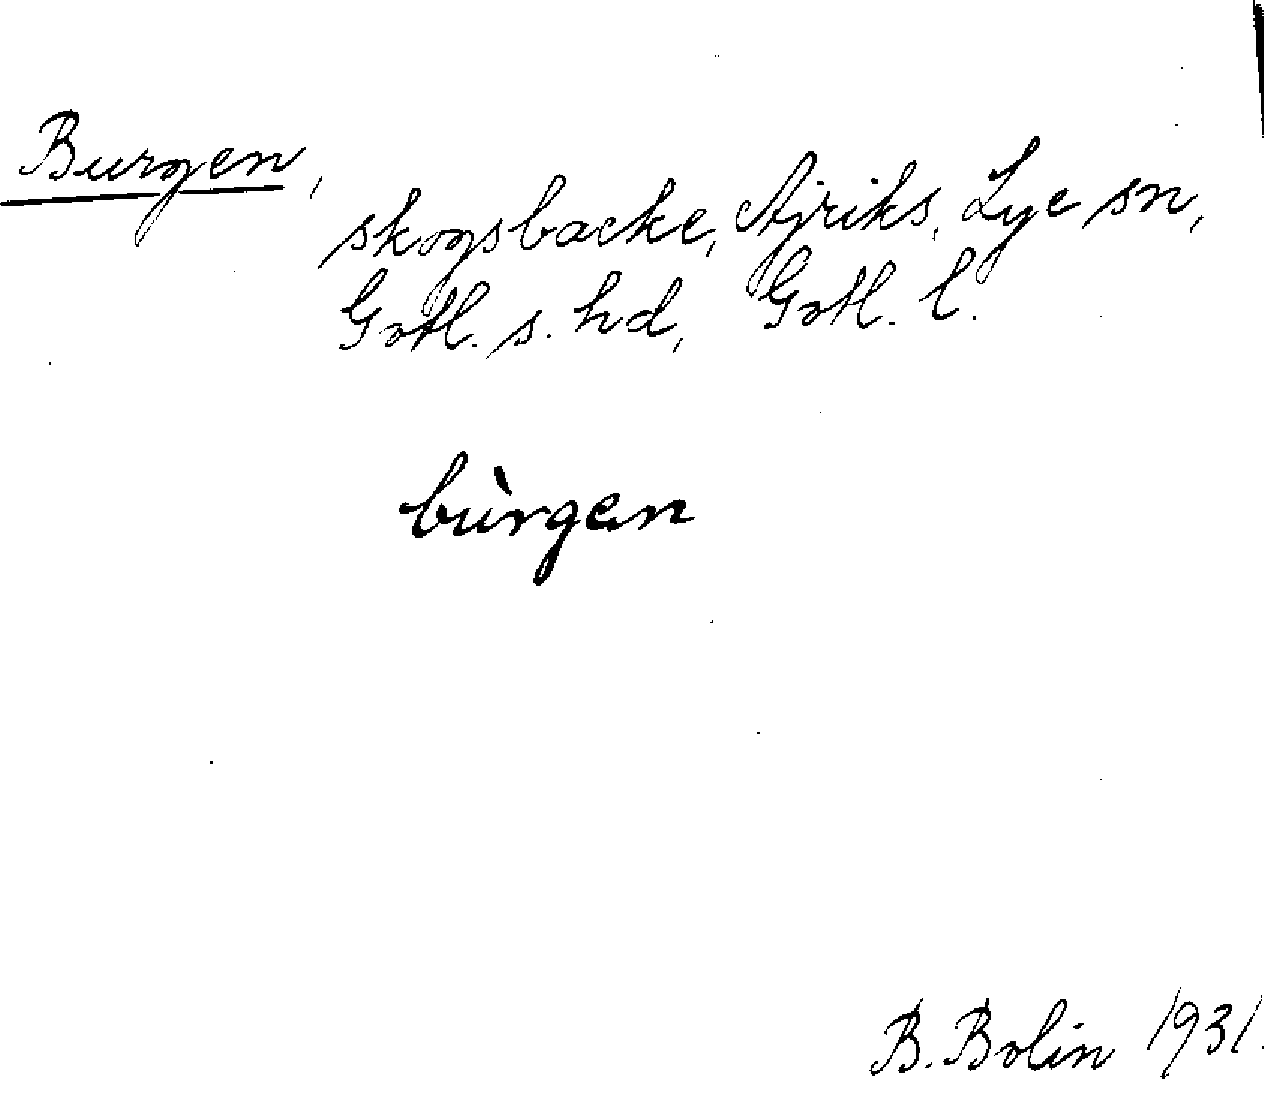 Burgen,
skogsbacke, Ajriks, Lye sn,
Gotl. s. hd, Gotl. l.
bùrgen
B. Bolin 1931.